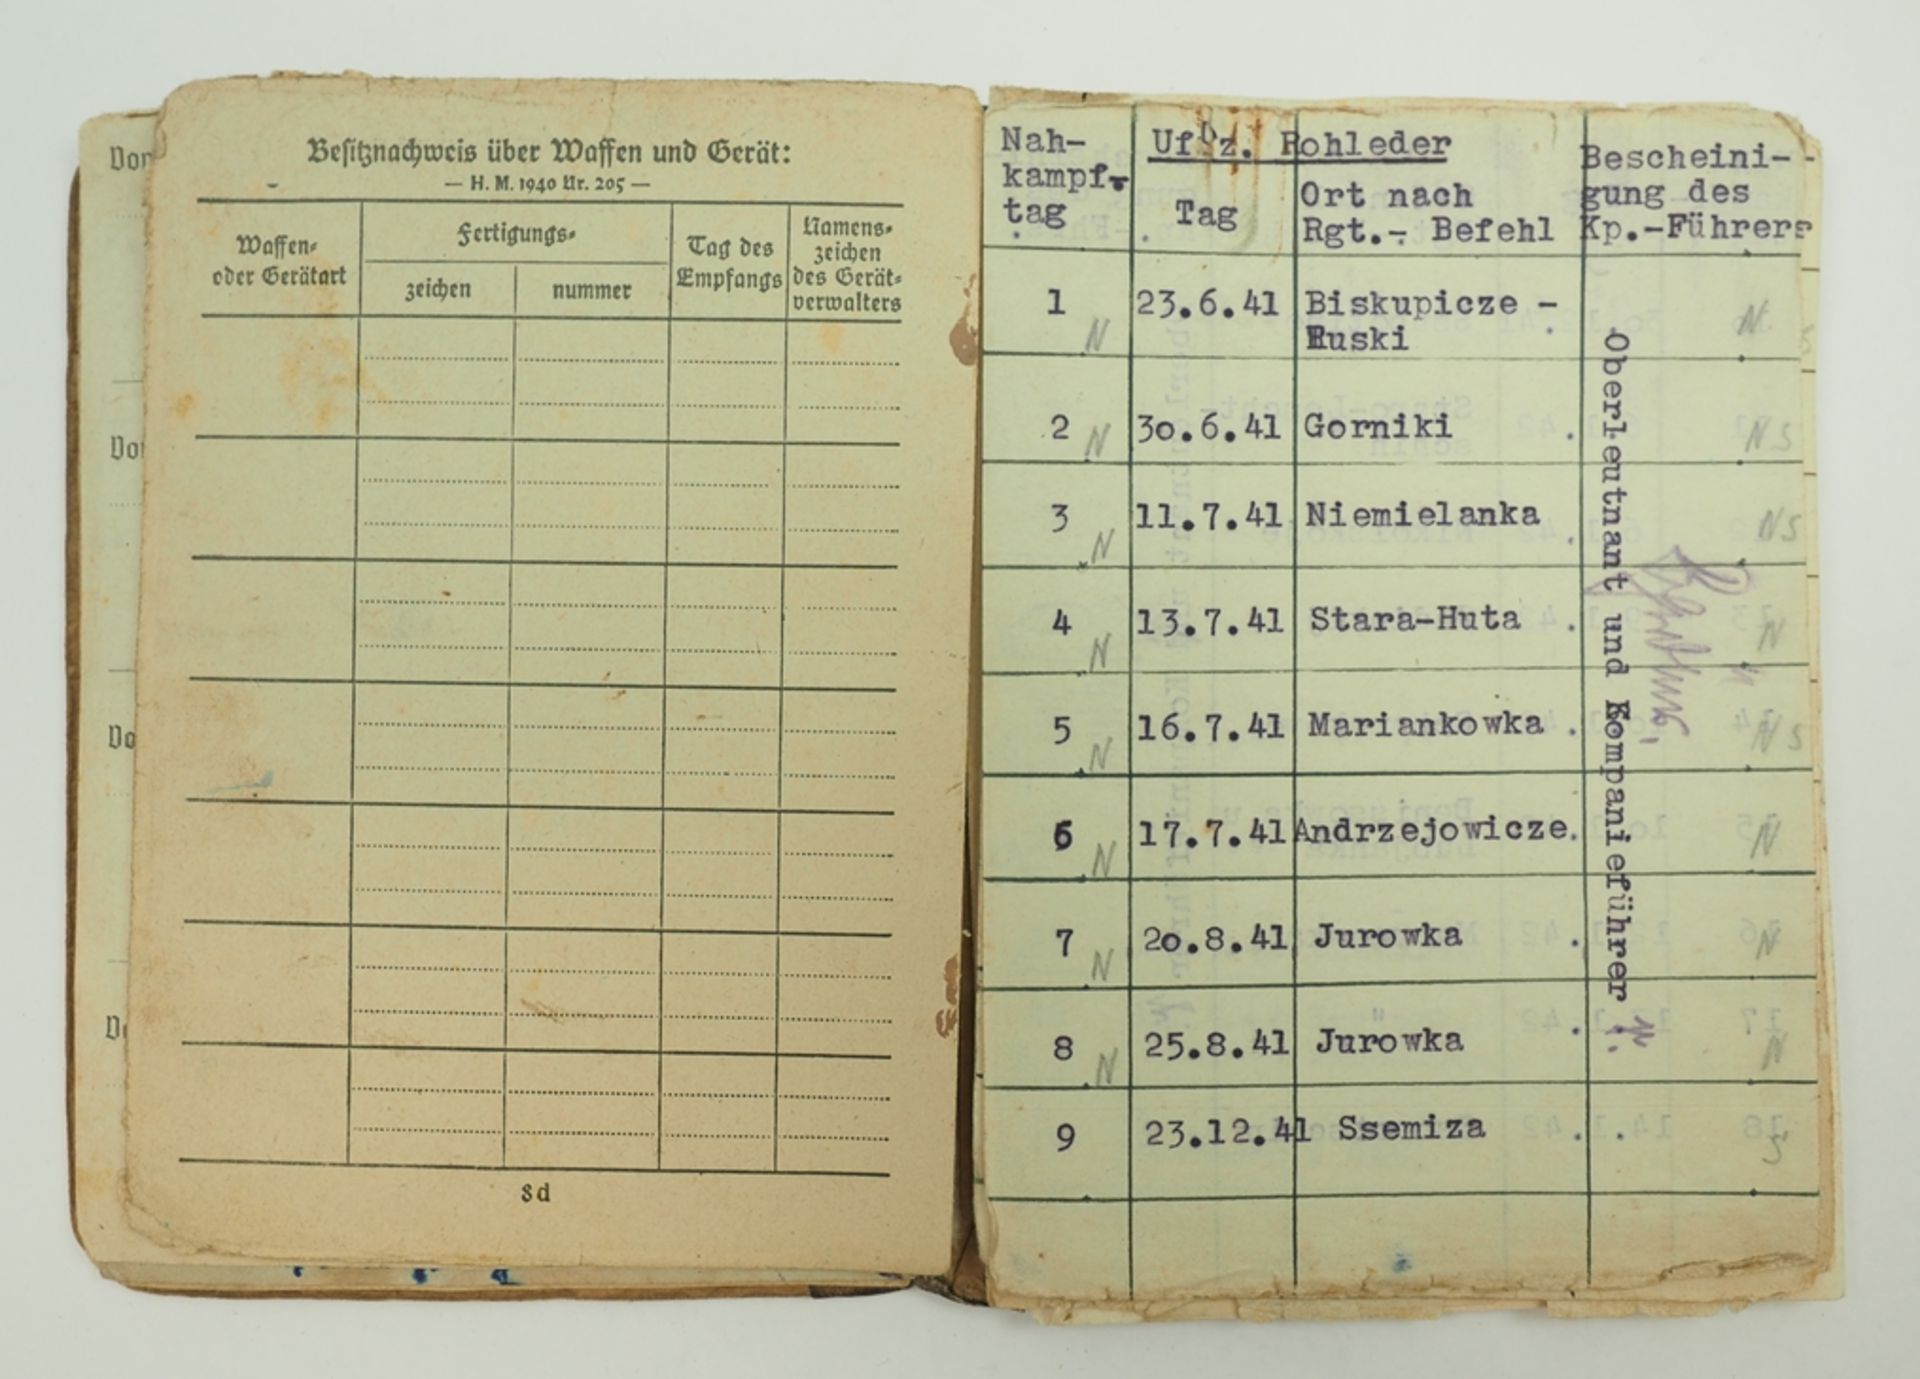 Besitznachweis über Waffen und Gerät:
— H. M. 1940 Nr. 205 —
Waffen- oder Gerätart
Fertigungs-
zeichen
nummer
Tag des Empfangs
Namens-
zeichen
des Gerät-
verwalters
8d
Von
Vo
Uffz. Rohleder
Nah-
kampf-
tag
Tag
Ort nach
Rgt.- Befehl
Bescheini-
gung des
Kp.-Führers
1 N 23.6.41 Biskupicze - N
Ruski
2 N 30.6.41 Gorniki . N S
3 N 11.7.41 Niemielanka N S
4 N 13.7.41 Stara-Huta . N
5 N 16.7.41 Mariankowka . N S
6 N 17.7.41 Andrzejowicze. N
7 N 20.8.41 Jurowka . N
8 N 25.8.41 Jurowka . N
9 23.12.41 Ssemiza . S
Oberleutnant und Kompanieführer